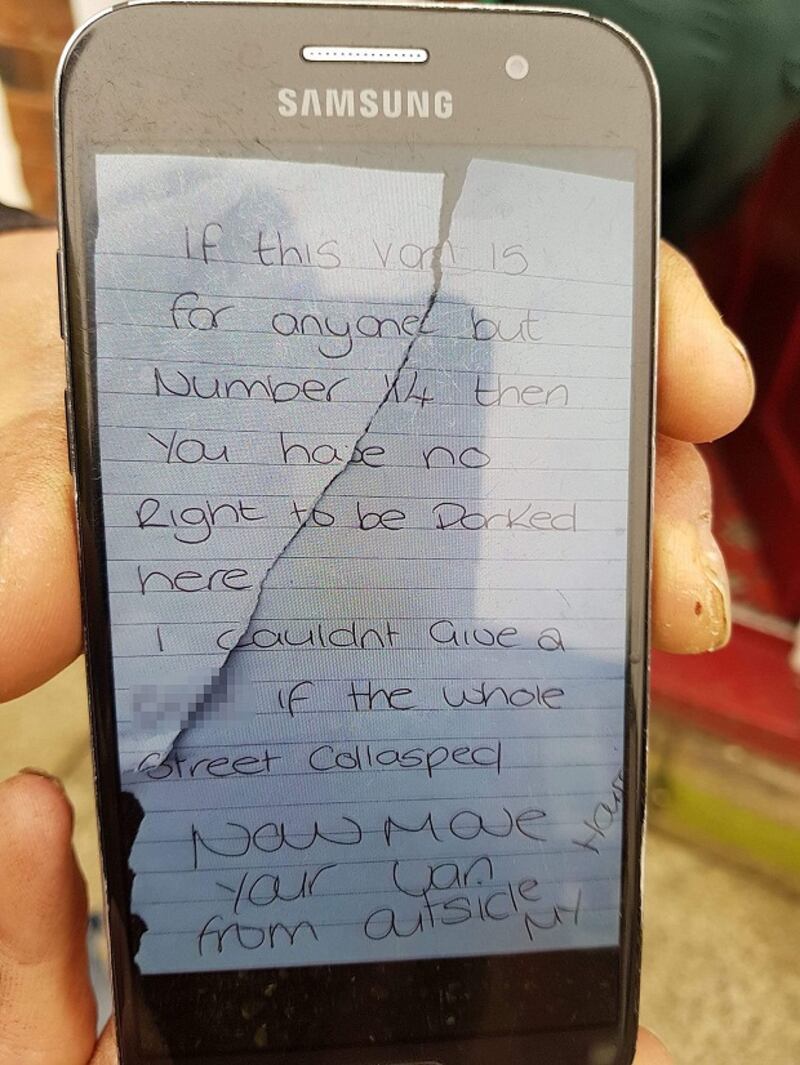 SAMSUNG
If this van is
for anyone but
Number 14 then
You have no
Right to be Parked
here
I couldnt Give a
if the whole
Street Collasped
Now Move
your van
from outside
MY